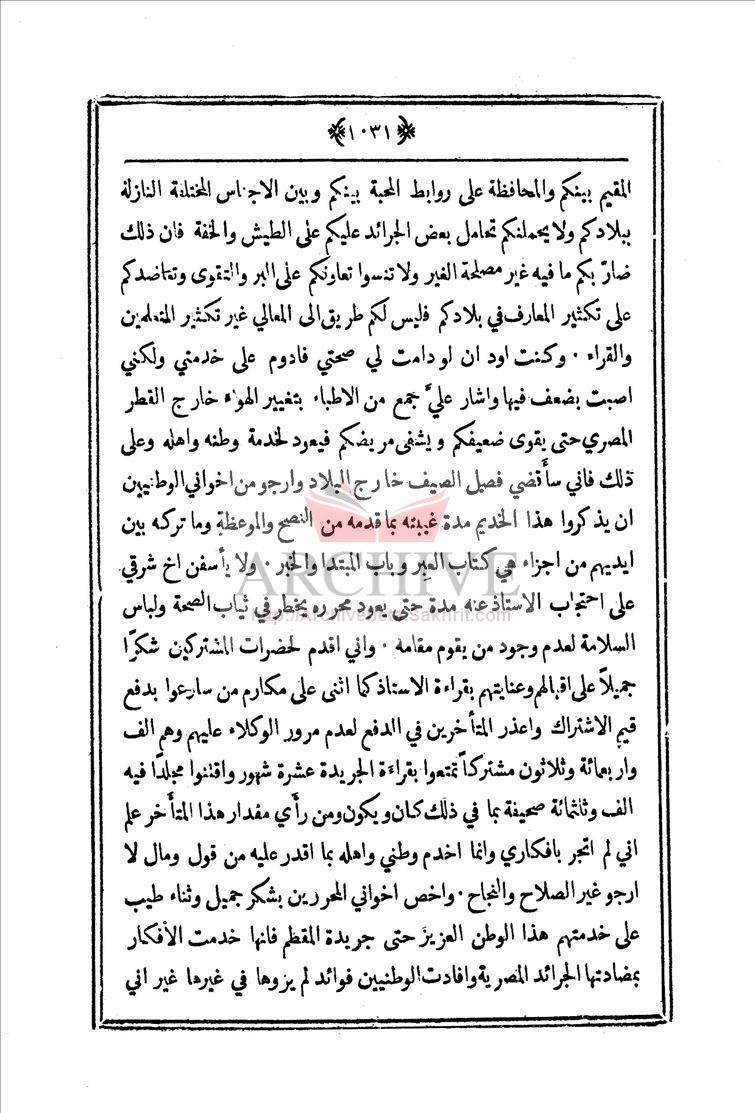 ﴿١٠٣١﴾
المقيم بينكم والمحافظة على روابط المحبة بينكم وبين الاجناس المختلفة النازلة
ببلادكم ولا يحملنكم تحامل بعض الجرائد عليكم على الطيش والخفة فان ذلك
ضارّ بكم ما فيه غير مصلحة الغير ولا تنسوا تعاونكم على البر والتقوى وتعاضدكم
على تكثير المعارف في بلادكم فليس لكم طريق الى المعالي غير تكثير المتعلمين
والقراء ٠ وكنت اود ان لو دامت لي صحتي فادوم على خدمتي ولكني
اصبت بضعف فيها واشار عليَّ جمع من الاطباء بتغيير الهواء خارج القطر
المصري حتى يقوى ضعيفكم ويشفى مريضكم فيعود لخدمة وطنه واهله وعلى
ذلك فاني سأقضي فصل الصيف خارج البلاد وارجو من اخواني الوطنيين
ان يذكروا هذا الخديم مدة غيبته بما قدمه من النصح والموعظة وما تركه بين
ايديهم من اجزاء هي كتاب العبر وباب المبتدا والخبر ٠ ولا يأسفن اخ شرقي
على احتجاب الاستاذ عنه مدة حتى يعود محرره يخطر في ثياب الصحة ولباس
السلامة لعدم وجود من يقوم مقامه ٠ واني اقدم لحضرات المشتركين شكرًا
جميلاً على اقبالهم وعنايتهم بقراءة الاستاذ كما اثنى على مكارم من سارعوا بدفع
قيم الاشتراك واعذر المتأخرين في الدفع لعدم مرور الوكلاء عليهم وهم الف
واربعمائة وثلاثون مشتركاً تمتعوا بقراءة الجريدة عشرة شهور واقتنوا مجلدًا فيه
الف وثلثمائة صحيفة بما في ذلك كان ويكون ومن رأي مقدار هذا المتأخر علم
اني لم اتجر بافكاري وانما اخدم وطني واهله بما اقدر عليه من قول ومال لا
ارجو غير الصلاح والنجاح ٠ واخص اخواني المحررين بشكر جميل وثناء طيب
على خدمتهم هذا الوطن العزيز حتى جريدة المقطم فانها خدمت الأفكار
بمضادتها الجرائد المصرية وافادت الوطنيين فوائد لم يزوها في غيرها غير اني
ARCHIVE